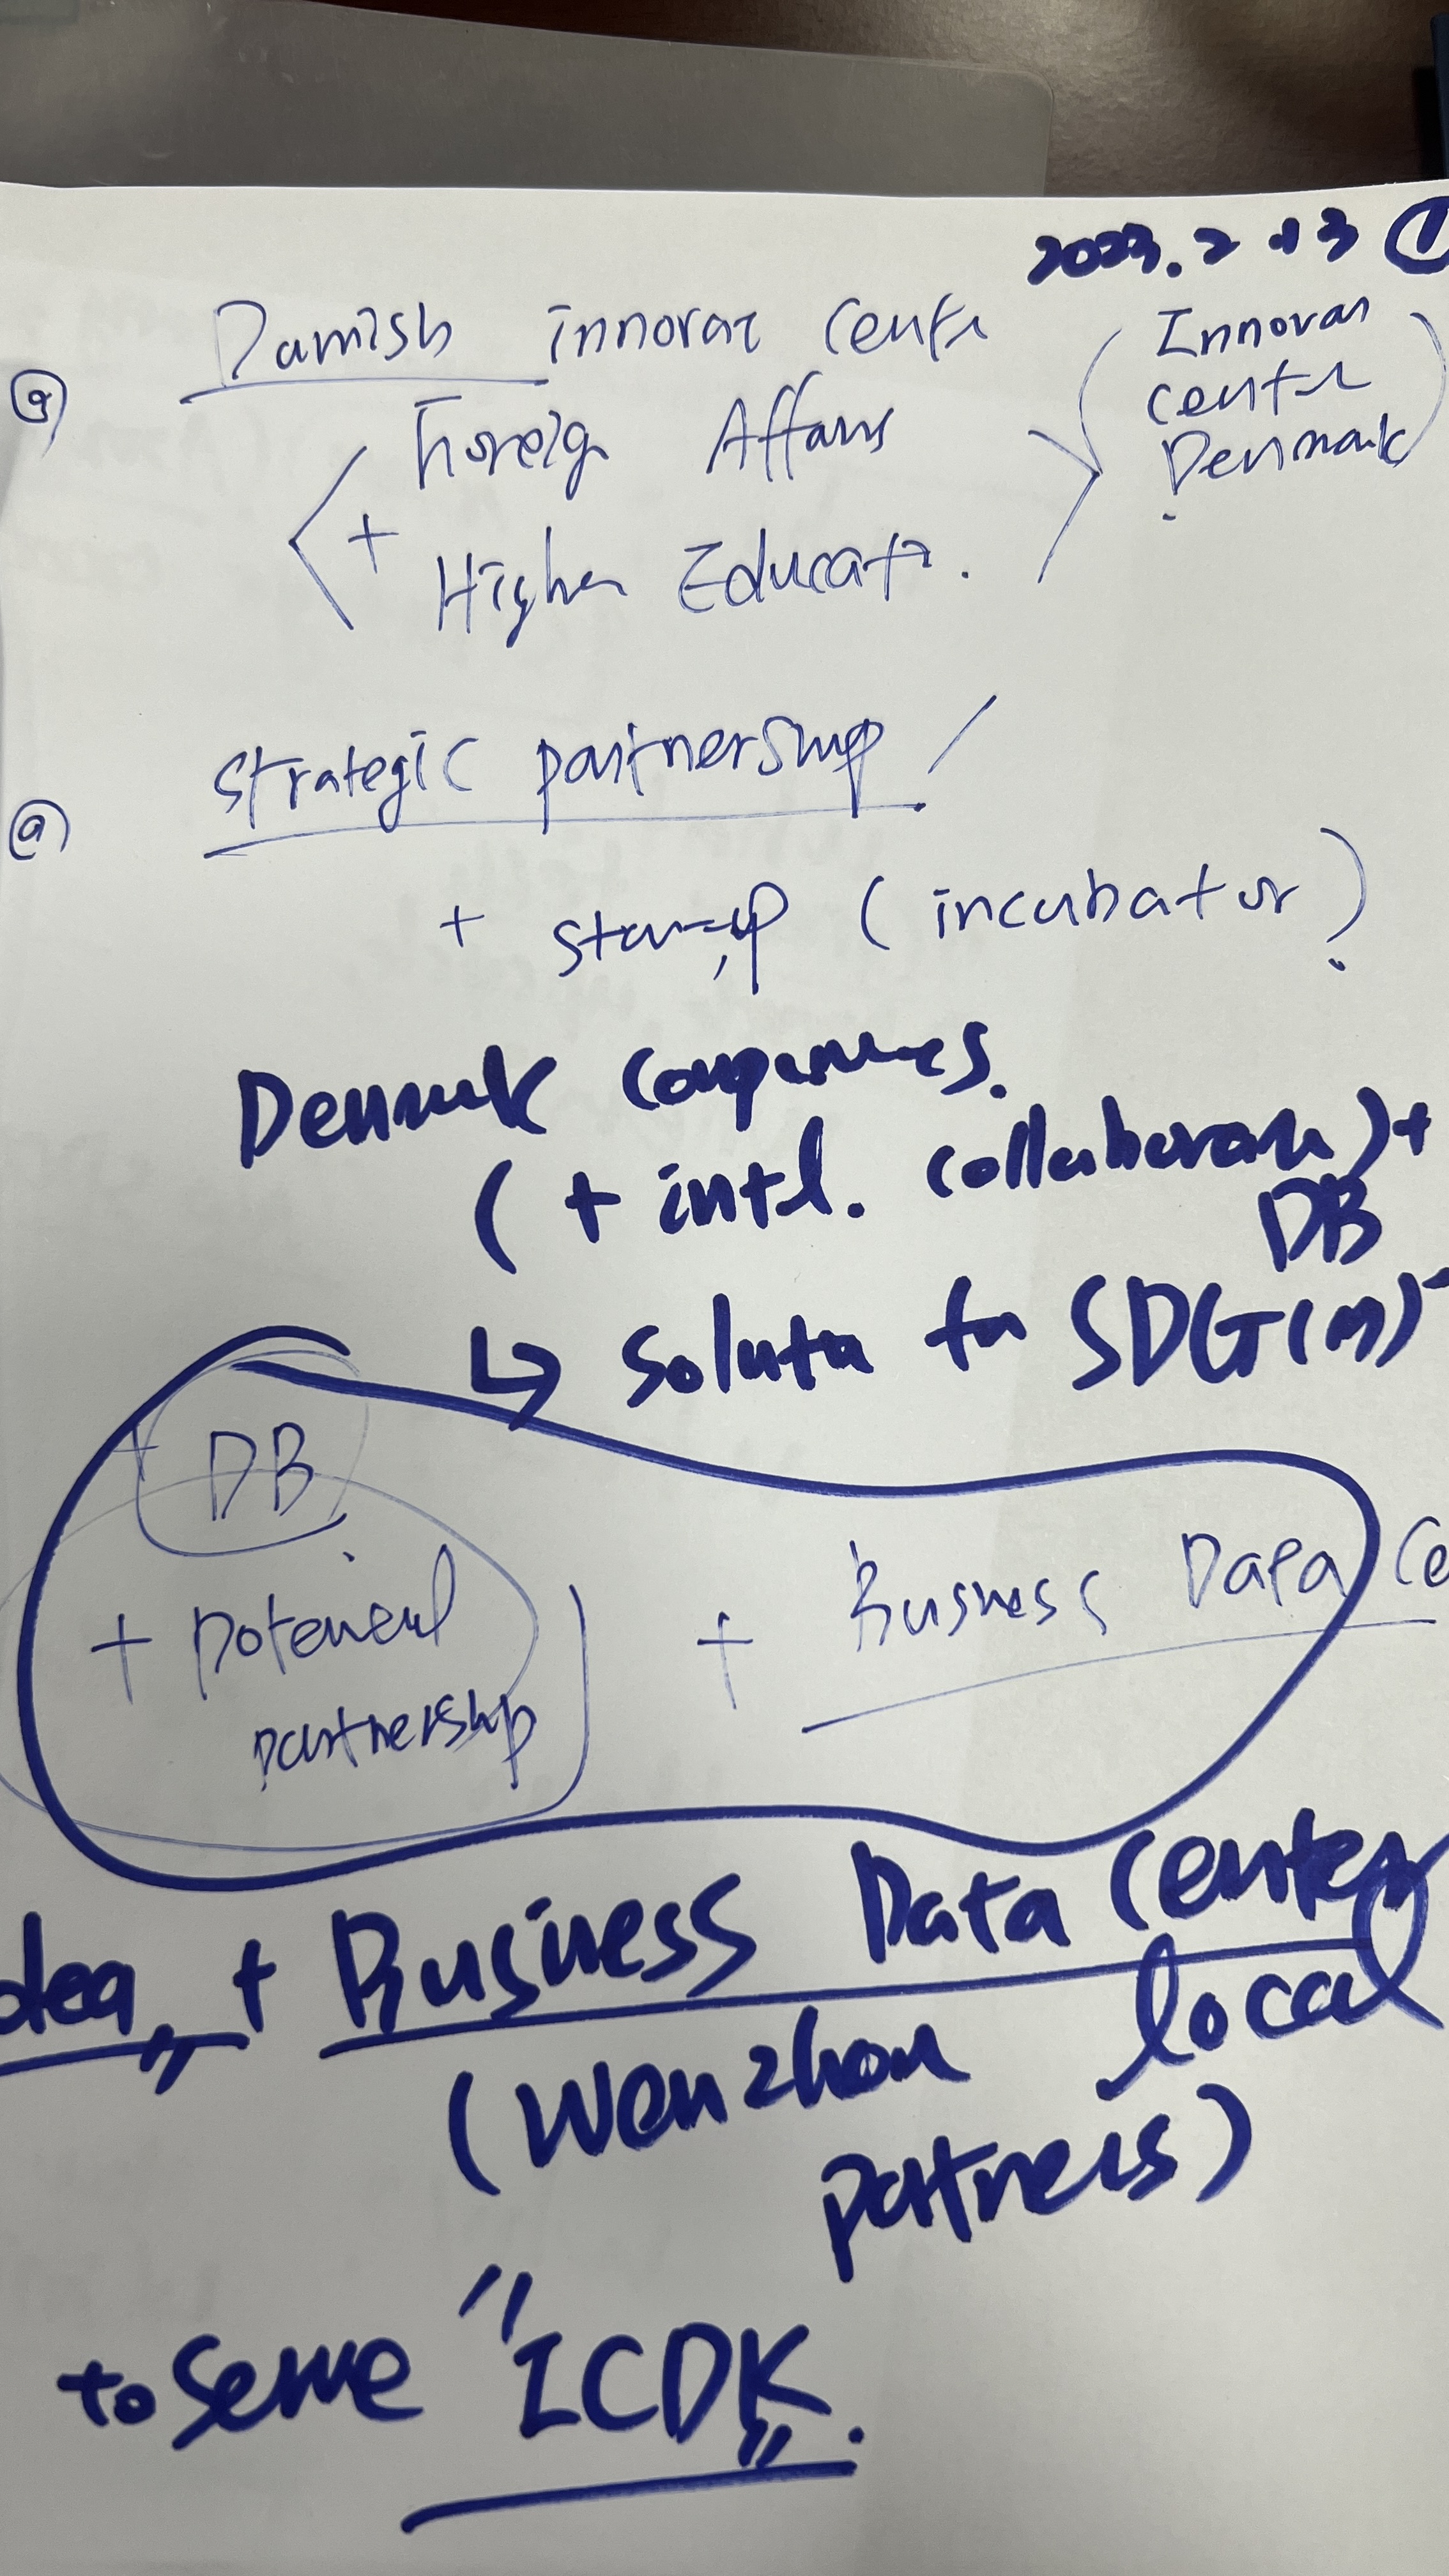 2023. 2 . 13 ①
@ Danish innovat Cente
(Innovan
center
Denmark)
Foreign Affairs
+ Higher Educati.
@ strategic partnership /
+ start-up (incubator)
Denmark companies.
(+ intl. collaboration) +
DB
↳ Soluta for SDG(17)
+ DB
+ potential
partnership
+ Business Data Ce
dea" + Business Data Center
(Wenzhou local
partners)
to serve "ICDK."